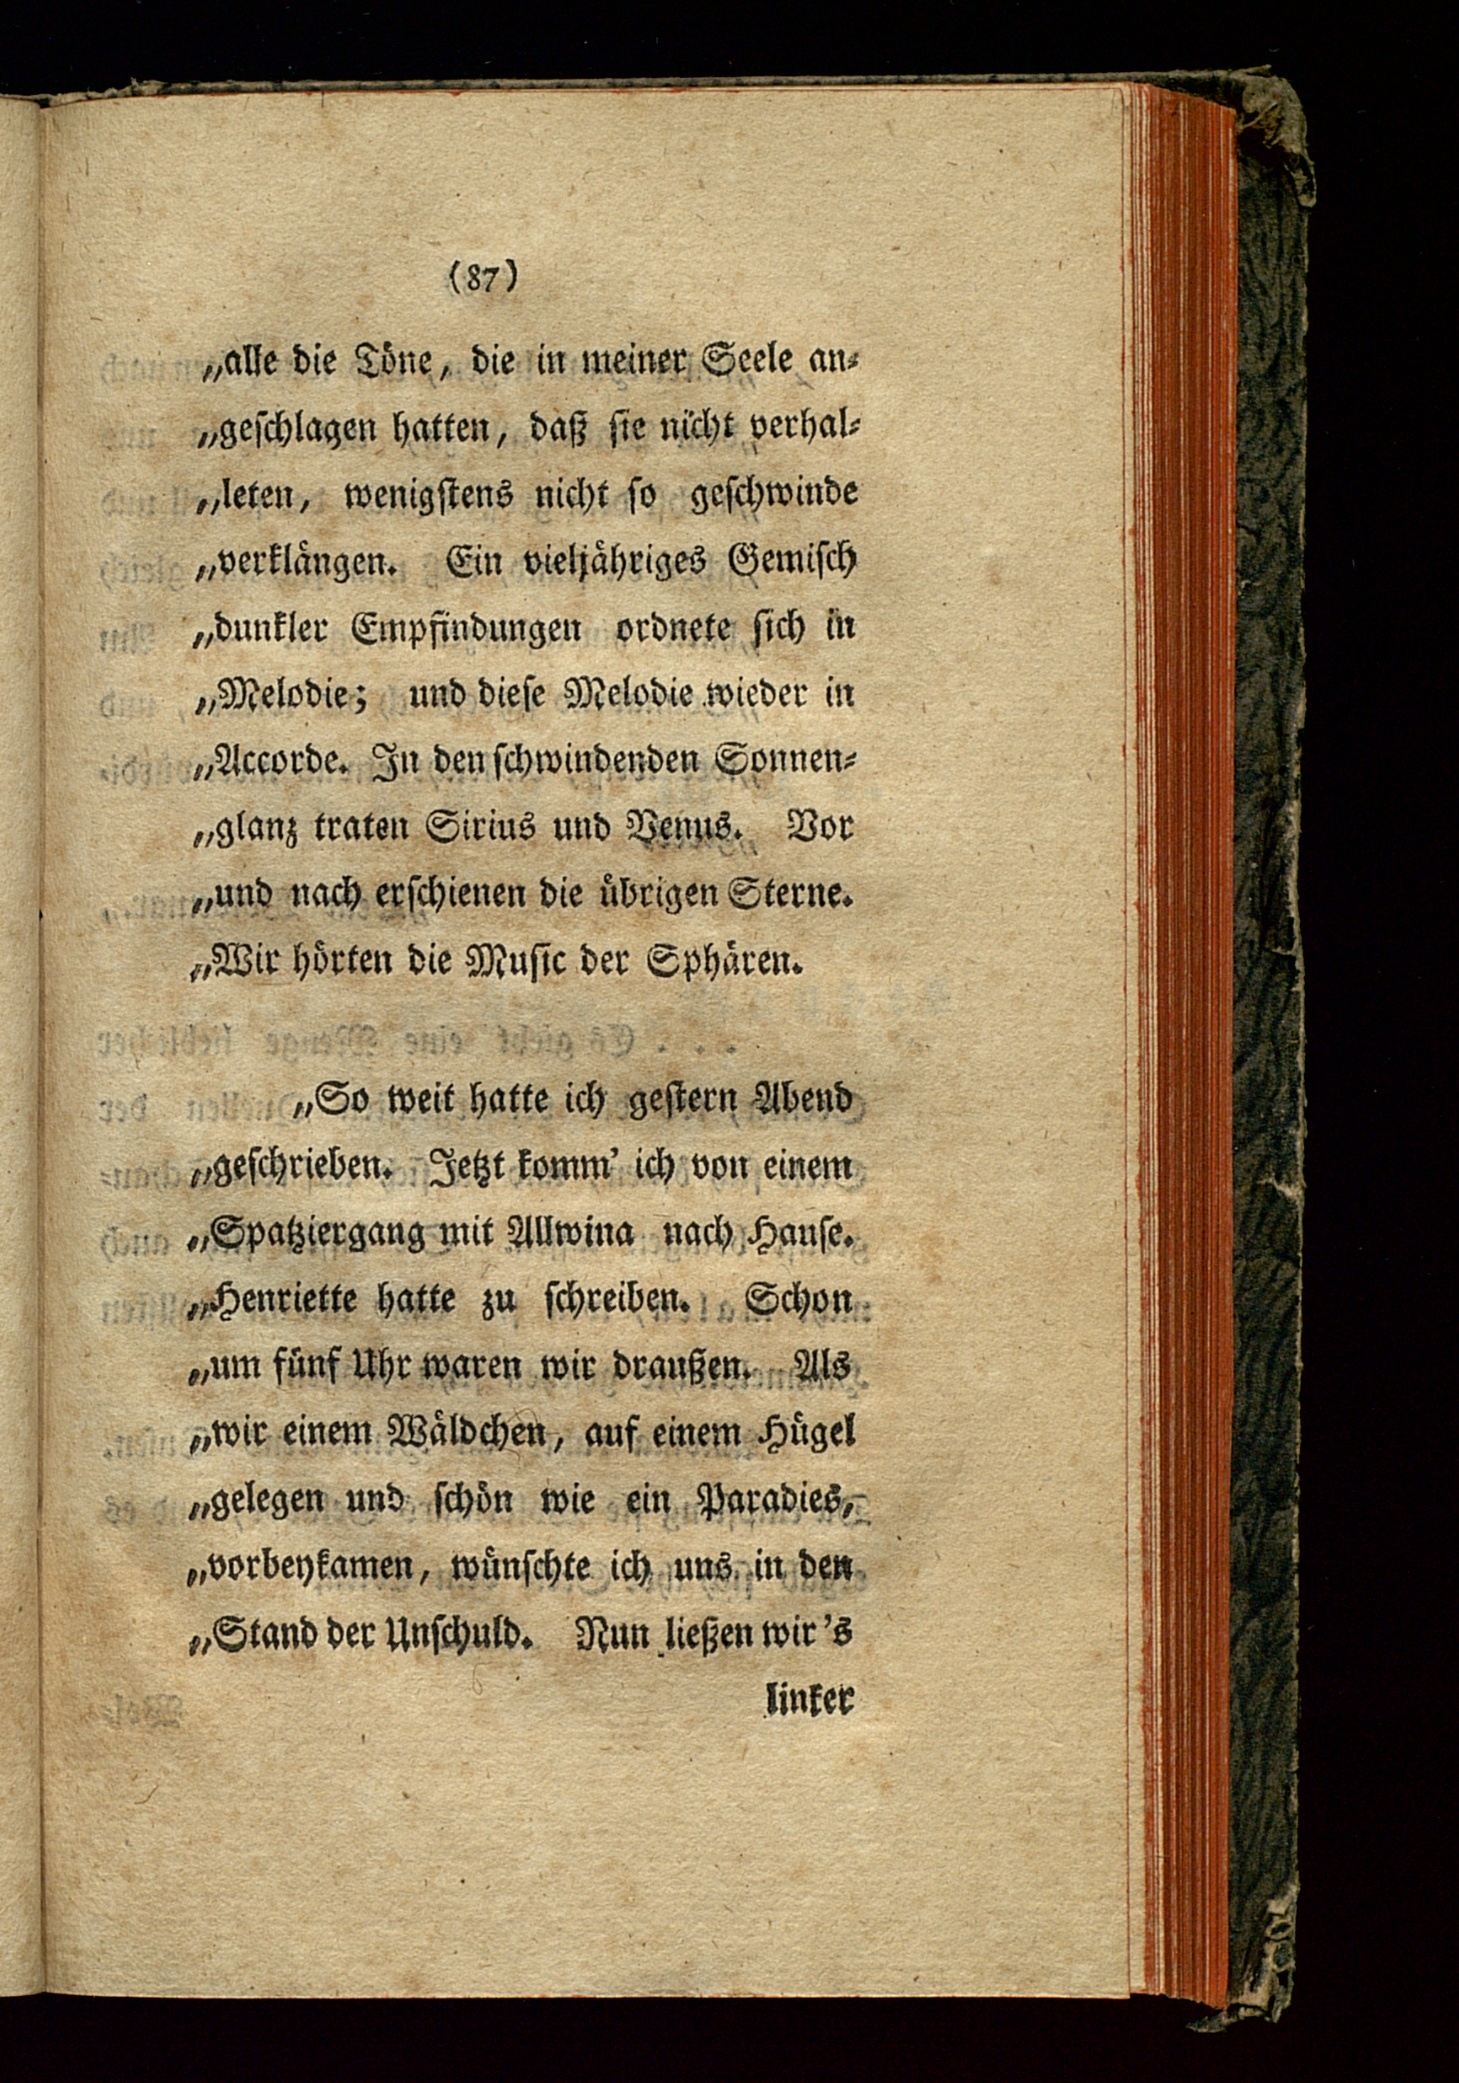 (87)
„alle die Töne, die in meiner Seele an-
„geschlagen hatten, daß sie nicht verhal-
„leten, wenigstens nicht so geschwinde
„verklängen. Ein vieljähriges Gemisch
„dunkler Empfindungen ordnete sich in
„Melodie; und diese Melodie wieder in
„Accorde. In den schwindenden Sonnen-
„glanz traten Sirius und Venus. Vor
„und nach erschienen die übrigen Sterne.
„Wir hörten die Music der Sphären.
„So weit hatte ich gestern Abend
„geschrieben. Jetzt komm' ich von einem
„Spatziergang mit Allwina nach Hause.
„Henriette hatte zu schreiben. Schon
„um fünf Uhr waren wir draußen. Als
„wir einem Wäldchen, auf einem Hügel
„gelegen und schön wie ein Paradies,
„vorbeykamen, wünschte ich uns in den
„Stand der Unschuld. Nun ließen wir's
linker